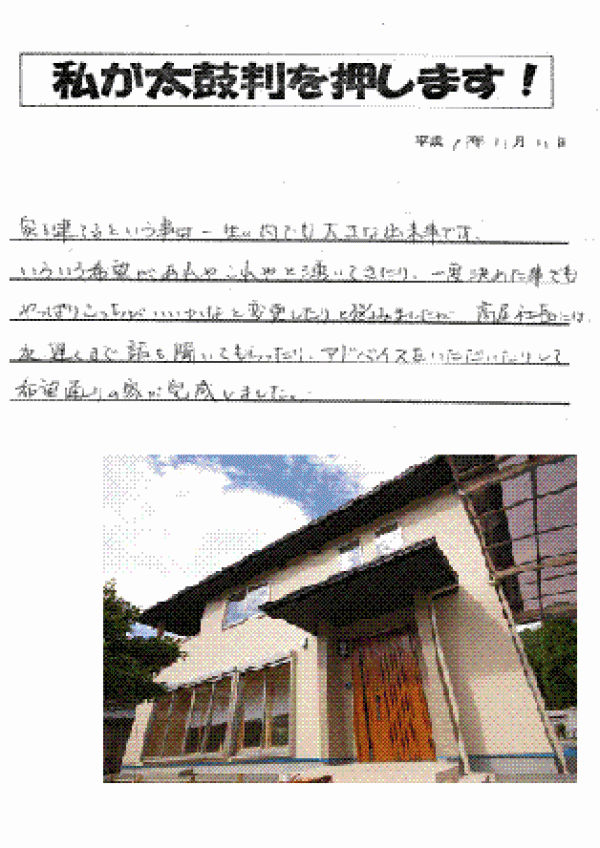 私が太鼓判を押します！
平成 17年 11月 日
家を建てるという事は一生の内でも大きな出来事です。
いろいろ希望があれやこれやと湧いてきたり、一度決めた事でも
やっぱりこっちがいいかなと変更したりと悩みましたが 社長には、
夜遅くまで話を聞いてもらったり、アドバイスをいただいたりして
希望通りの家が完成しました。